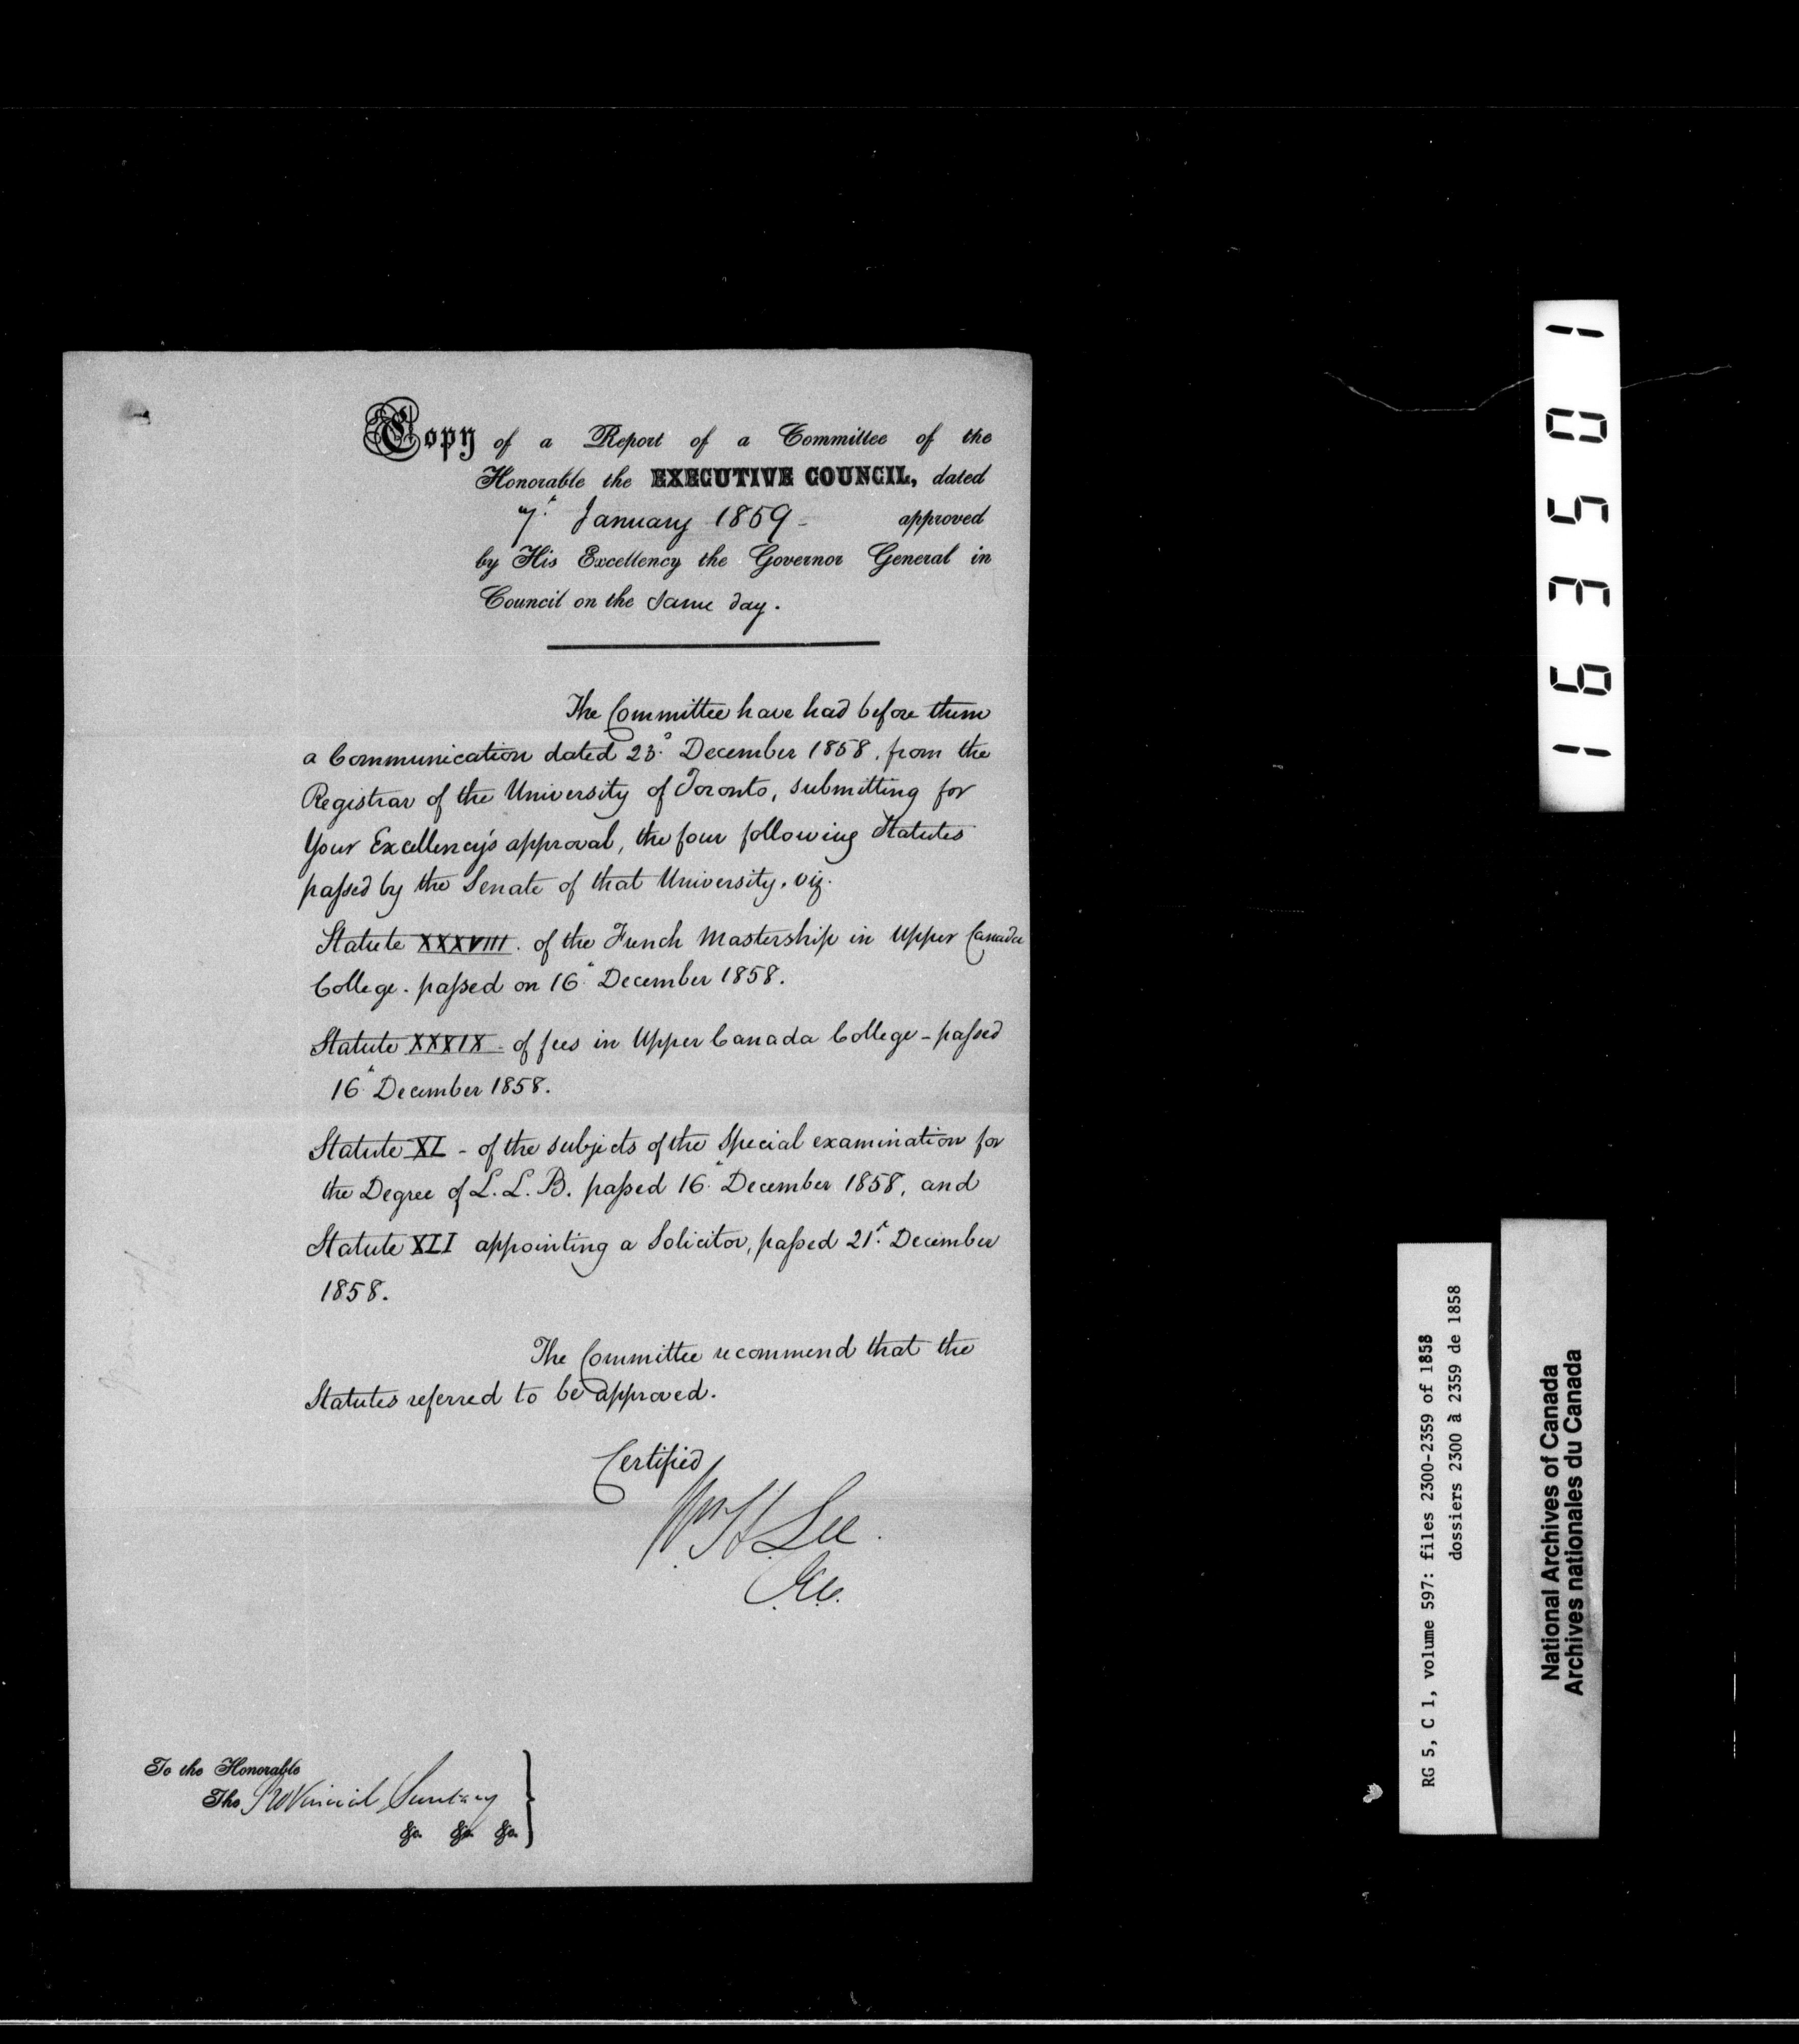 Copy of a Report of a Committee of the
Honorable the EXECUTIVE COUNCIL, dated
7th January 1859 - approved
by His Excellency the Governor General in
Council on the same day.
The Committee have had before them
a Communication dated 23d December 1858, from the
Registrar of the University of Toronto, submitting for
Your Excellency's approval, the four following Statutes
passed by the Senate of that University, viz.
Statute XXXVIII. of the French Mastership in Upper Canada
College. passed on 16th December 1858.
Statute XXXIX - of fees in Upper Canada College - passed
16th December 1858.
Statute XL - of the subjects of the special examination for
the Degree of L. L. B. passed 16th December 1858, and
Statute XLI appointing a Solicitor, passed 21st December
1858.
The Committee recommend that the
Statutes referred to be approved.
Certified
Wm H Lee
To the Honorable
The Provincial Secretary
&c. &c. &c.
105391
RG 5, C 1, volume 597: files 2300-2359 of 1858
dossiers 2300 à 2359 de 1858
National Archives of Canada
Archives nationales du Canada